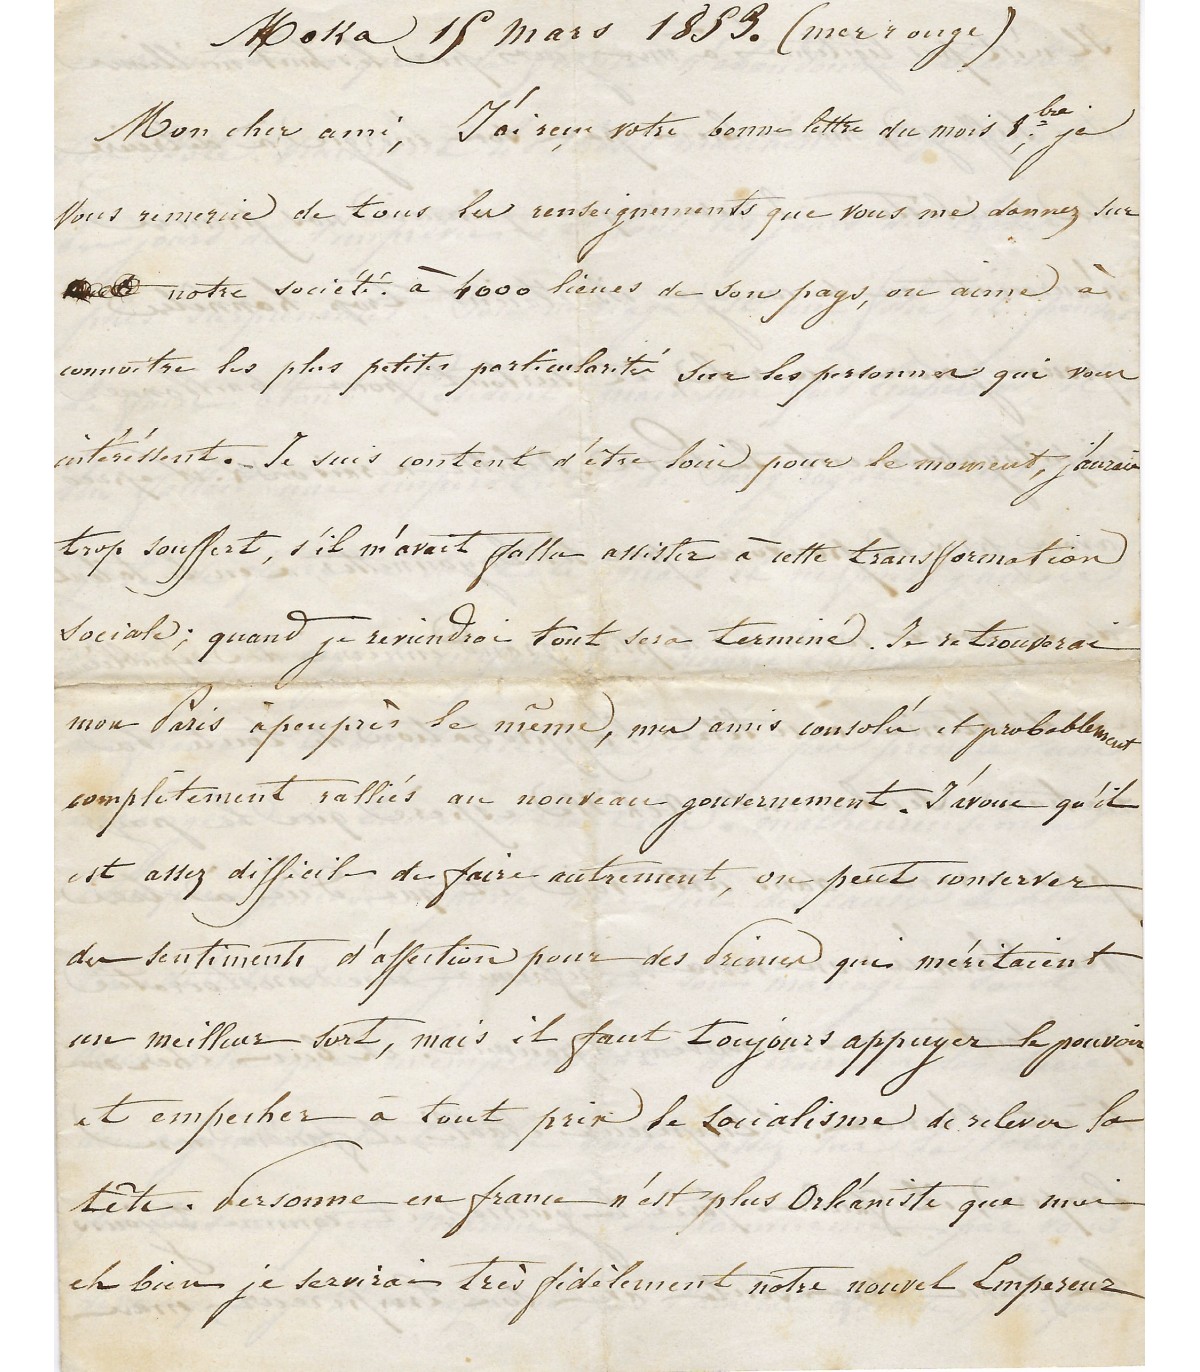 Moka 15 mars 1853. (mer rouge)
Mon cher ami, J'ai reçu votre bonne lettre du mois 8.bre je
vous remercie de tous les renseignements que vous me donnez sur
notre société. à 4000 lieues de son pays, on aime à
connoitre les plus petites particularités sur les personnes qui vous
intéréssent. Je suis content d'être loin pour le moment, j'aurais
trop souffert, s'il m'avait fallu assister à cette transformation
sociale; quand je reviendrai tout sera terminé. Je retrouverai
mon Paris àpeuprès le même, mes amis consolés et probablement
complètement ralliés au nouveau gouvernement. J'avoue qu'il
est assez difficile de faire autrement, on peut conserver
des sentiments d'affection pour des Princes qui méritaient
un meilleur sort, mais il faut toujours appuyer le pouvoir
et empecher à tout prix le socialisme de relever la
tête. Personne en france n'est plus Orléaniste que moi
eh bien je servirai très fidèlement notre nouvel Empereur